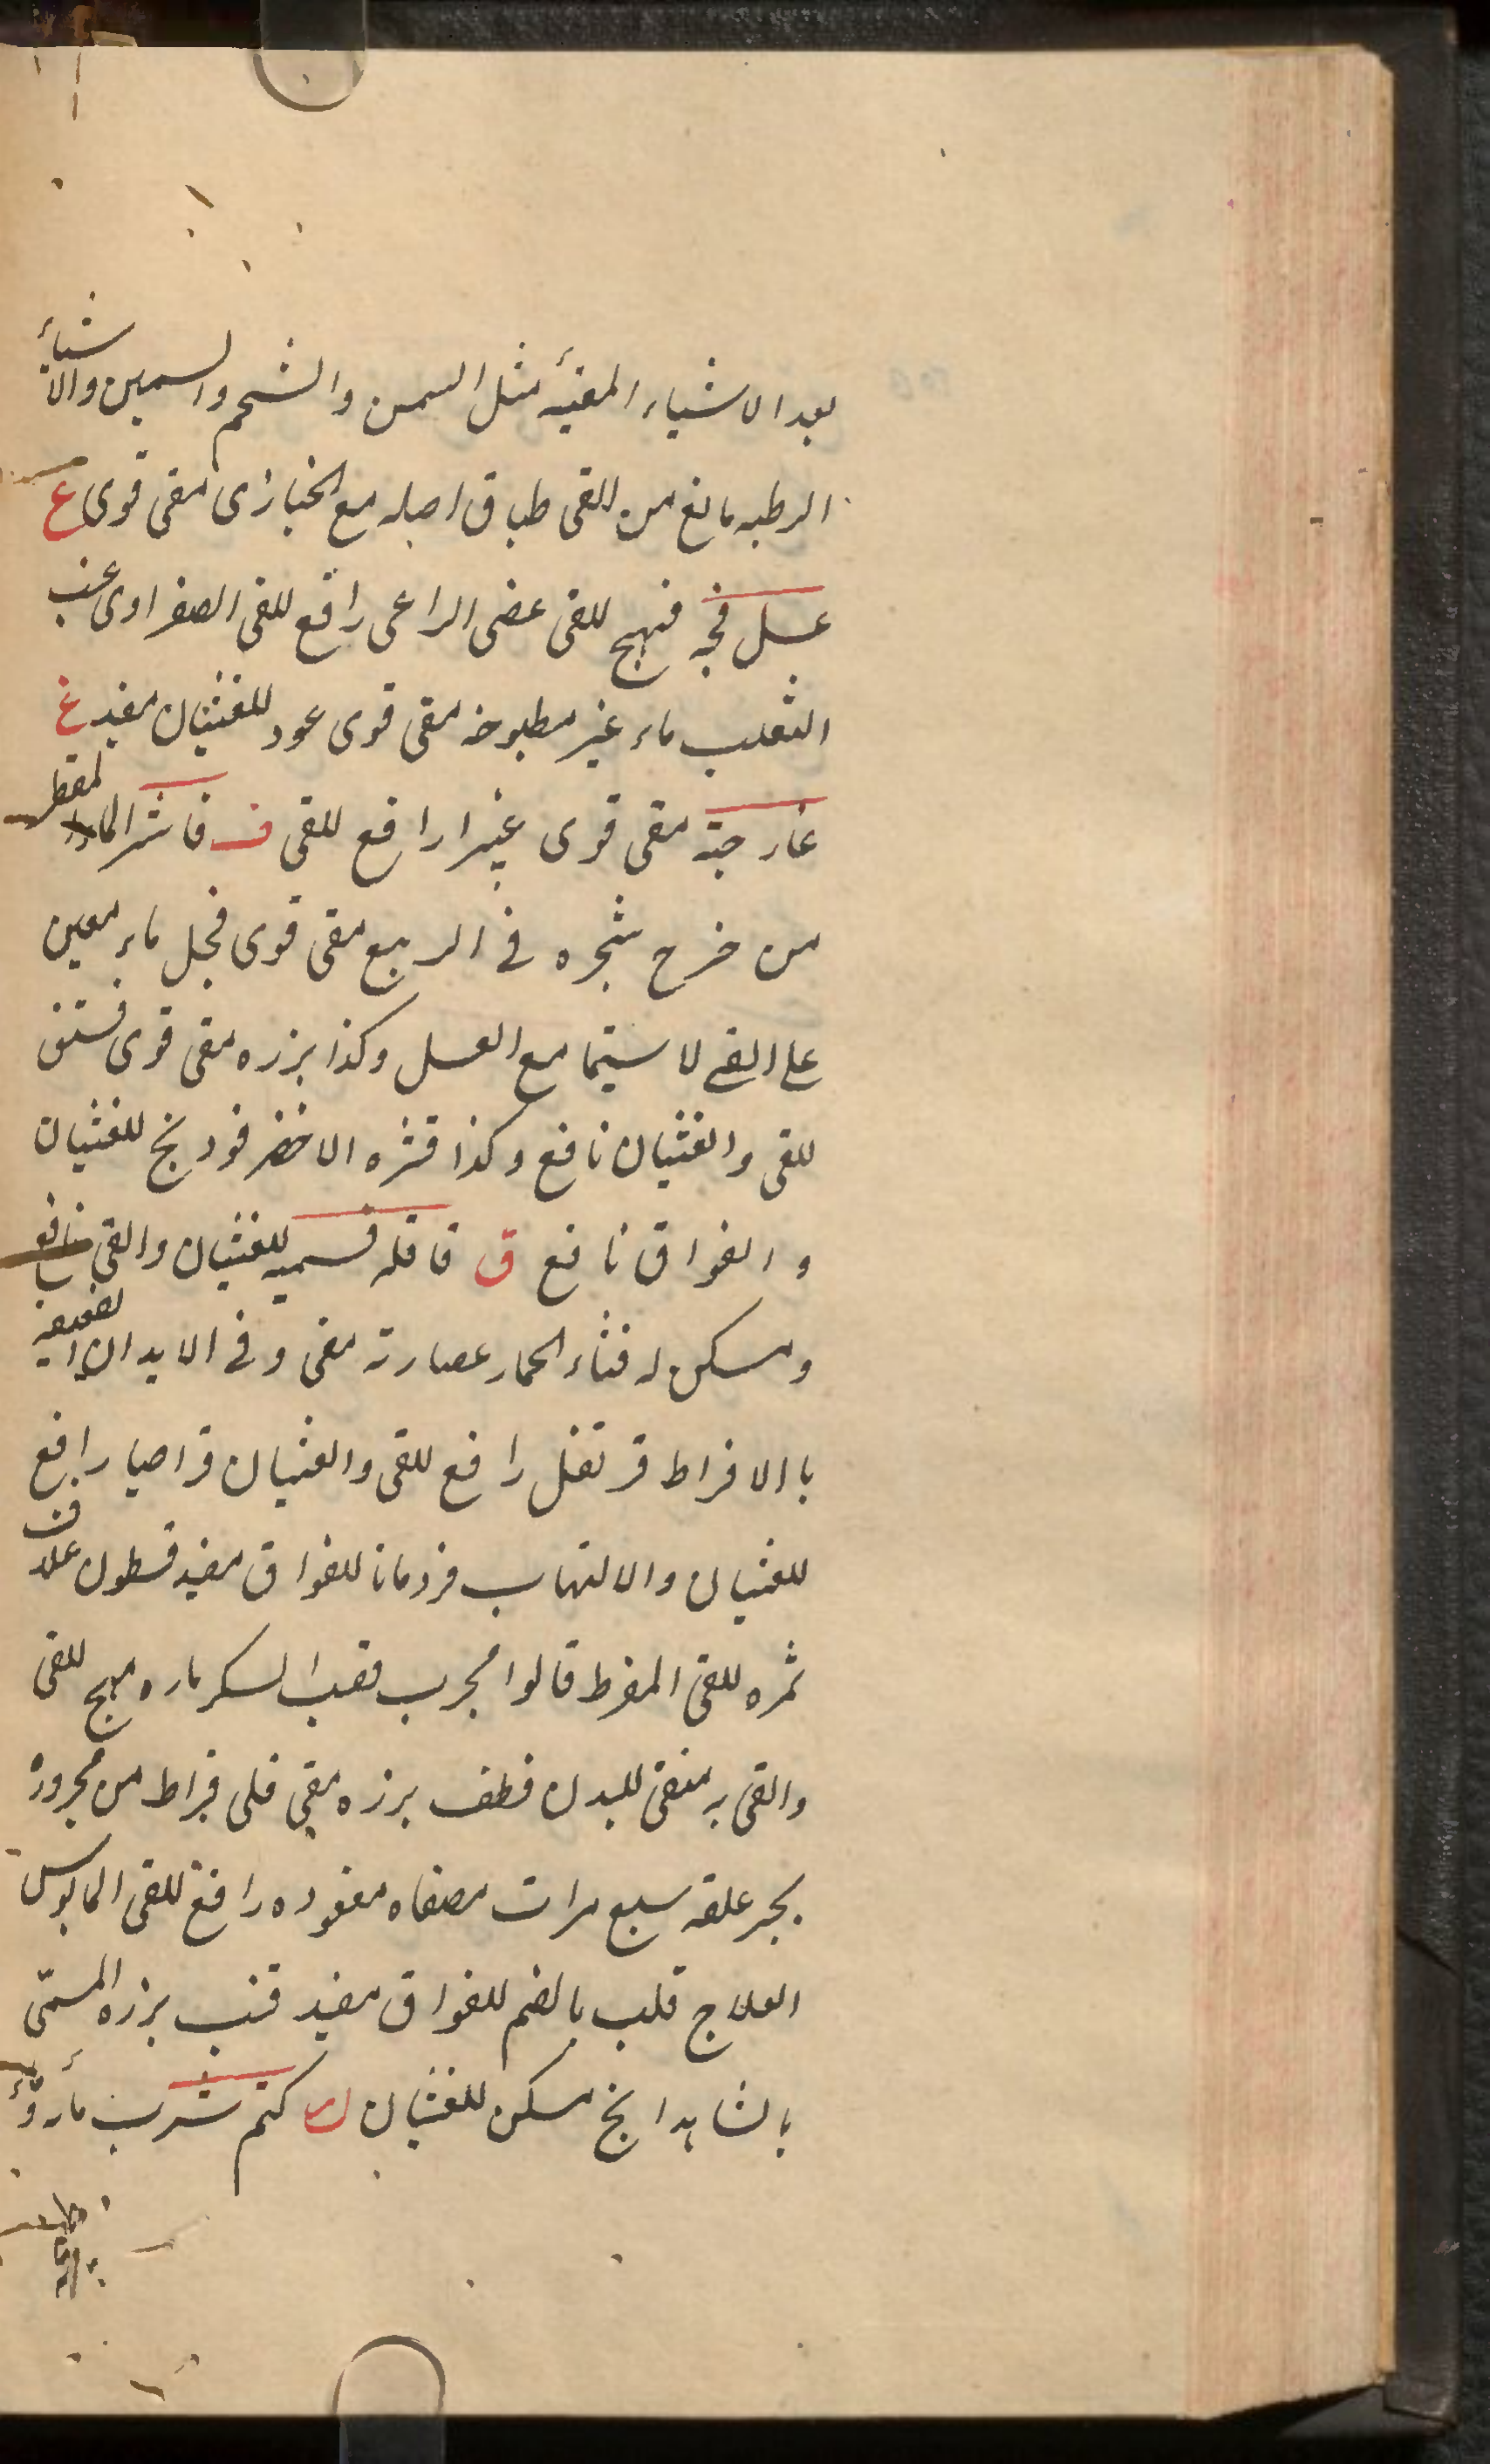 بعد الاشياء المغثيه مثل السمن والشحم والسمين والاشياء
الرطبه مانع من القى طباق اصله مع الخبازى مقى قوى ع
عسل فجه مهيج للقى عصى الراعى رافع للقى الصفراوى عنب
الثعلب ماء غير مطبوخه مقى قوى عود للغثيان مفيد غ
غار حبة مقى قوى غبيرا رافع للقى ف فاشرا الماء المقطر
من خرح شجره فى الربيع مقى قوى فجل ماء معين
على القى لا سيما مع العسل وكذا بزره مقى قوى فستق
للقى والغثيان نافع وكذا قشره الاخضر فودنج للغثيان
والفواق نافع ق قاقله قسميه للغثيان والقى نافع
ومسكن له قثاء الحمار عصارته مقى وفى الابدان الضعيفه
باالافراط قرنفل رافع للقى والغثيان قراصيا رافع
للغثيان والالتهاب قردمانا للفواق مفيد قسطون علاقت
ثمره للقى المفرط قالوا مجرب قصب السكر ماره مهيج للقى
والقى به منقى للبدن قطف بزره مقى قلى قيراط من مجروره
بجر علقه سبع مرات مصفاه معقوده رافع للقى المايوس
العلاج قلب بالضم للفواق مفيد قنب بزره المسمّى
بالشاهدانج مسكن للغثيان ك كتم شرب ماء